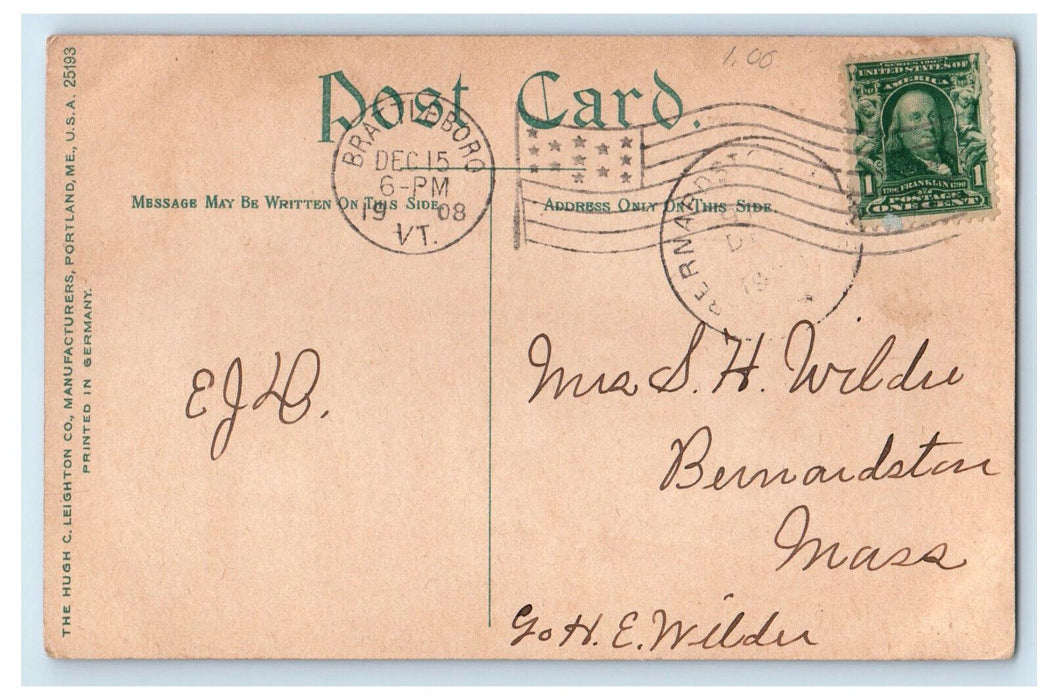 1.00
Post Card.
SERIES 1902
UNITED STATES OF
AMERICA
1 1706 FRANKLIN 1790 1
POSTAGE
ONE CENT
BRATTLEBORO
DEC 15
6-PM
19 08
VT.
BERNARDST
D
19
MESSAGE MAY BE WRITTEN ON THIS SIDE
ADDRESS ONLY ON THIS SIDE.
E J D.
Mrs S. H. Wilder
Bernardston
Mass
H. E. Wilder
THE HUGH C. LEIGHTON CO., MANUFACTURERS, PORTLAND, ME., U.S.A. 25193
PRINTED IN GERMANY.